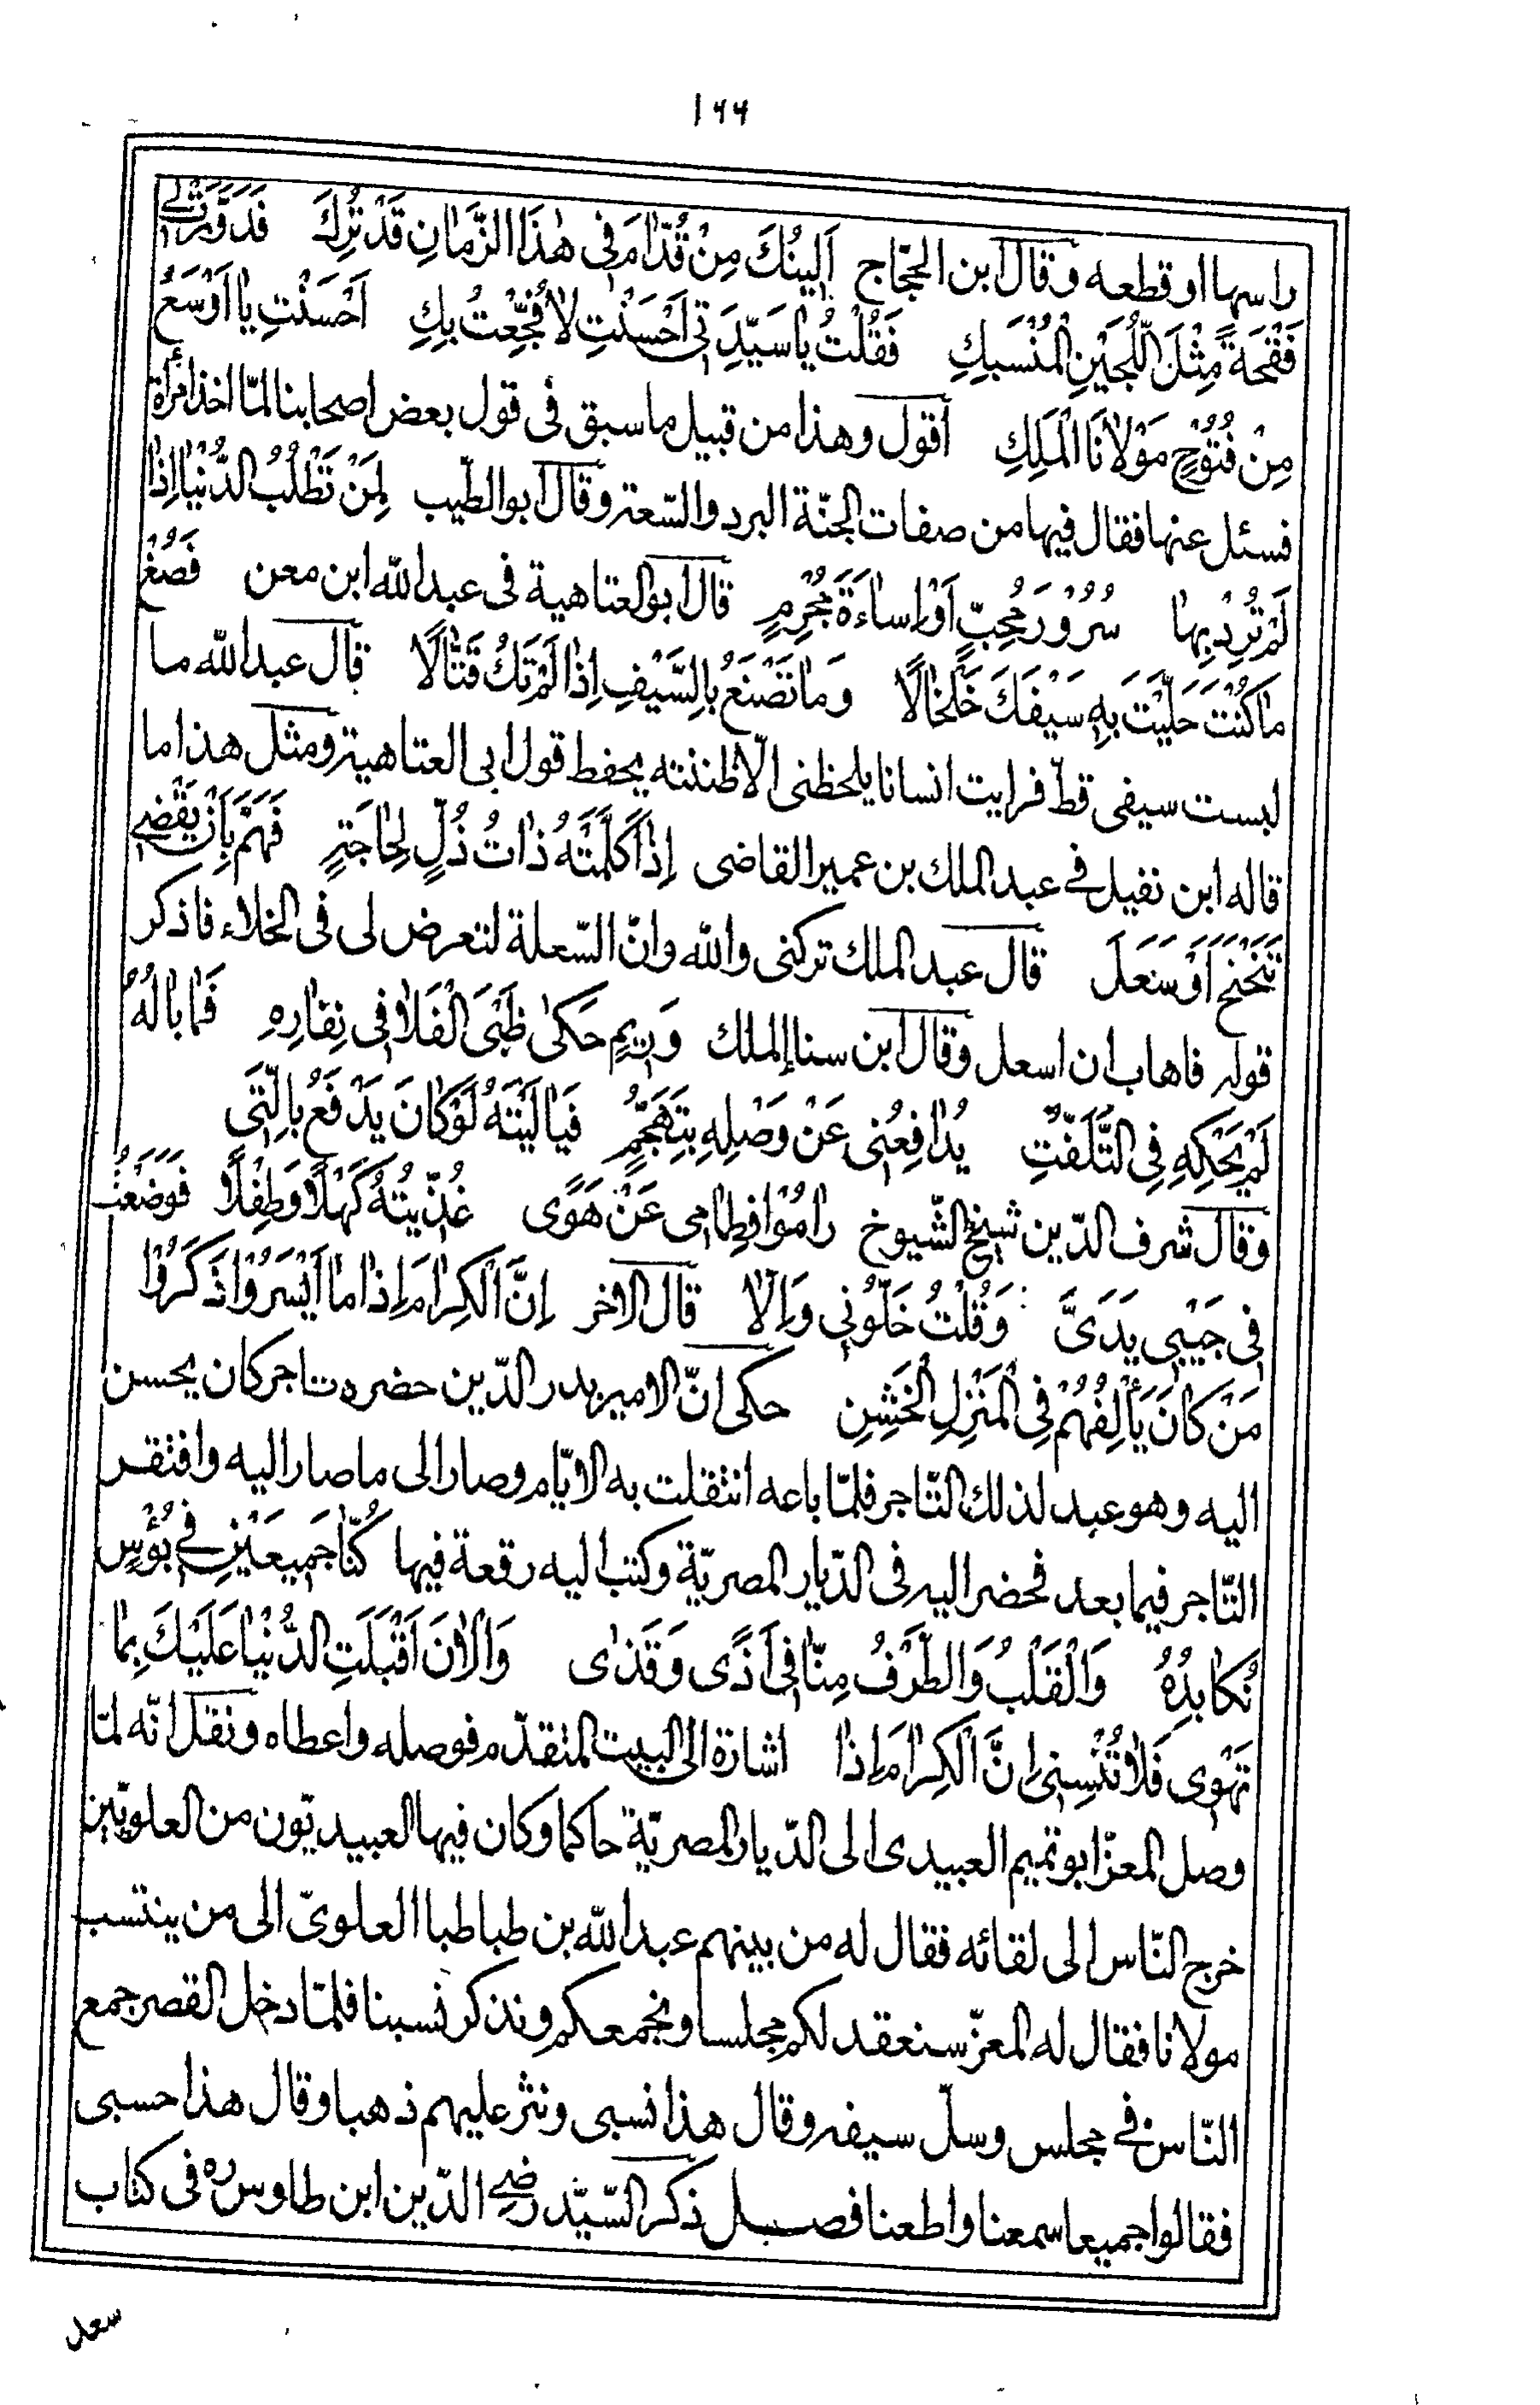 ١٩٩
راسها او قطعه وقال ابن الحجّاج اَلَينُكَ مِنْ قُدّامَ فى هٰذَا الزَّمٰانِ قَدْ تُرِكَ فَدَوَّرَتْ لى
فَقْحَةً مِثْلَ اللُّجَيْنِ الْمُنْسَبِكِ فَقُلْتُ يٰا سَيِّدَتى اَحْسَنْتِ لاٰ فُجِّعْتُ بِكِ اَحْسَنْتِ يٰا اَوْسَعُ
مِنْ فُتُوْحِ مَوْلاٰنَا الْمَلِكِ أقول وهذا من قبيل ما سبق فى قول بعض اصحابنا لمّا اخذ امرأة
فسئل عنها فقال فيها من صفات الجنّة البرد والسّعة وقال ابو الطّيب لِمَنْ تَطْلُبُ الدُّنْيٰا اِذٰا
لَمْ تُرِدْ بِهٰا سُرُوْرَ مُحِبٍّ اَوْ اِسٰاءَةَ مُجْرِمٍ قال ابو العتاهية فى عبد الله ابن معن فَصُغْ
مٰا كُنْتَ حَلَّيْتَ بِهِ سَيْفَكَ خَلْخٰالاً وَمٰا تَصْنَعُ بِالسَّيْفِ اِذٰا لَمْ تَكُ قَتّٰالاً قال عبد الله ما
لبست سيفى قطّ فرايت انسانا يلحظنى الّا ظننته يحفظ قول ابى العتاهية ومثل هذا ما
قاله ابن نفيل فى عبد الملك بن عمير القاضى اِذٰا كَلَّمَتْهُ ذٰاتُ ذُلٍّ لِحٰاجَةٍ فَهَمَّ بِاَنْ يَقْضِىَ
تَنَحْنَحَ اَوْ سَعَلَ قال عبد الملك تركنى والله وانّ السّعلة لتعرض لى فى الخلاء فاذكر
قوله فاهاب ان اسعل وقال ابن سناء الملك وَرِيمٍ حَكىٰ ظَبْىَ الْفَلاٰ فى نِفٰارِهِ فَمٰا بٰالُهُ
لَمْ يَحْكِهِ فِى التَّلَفُّتِ يُدٰافِعُنى عَنْ وَصْلِهِ بِتَهَجُّمٍ فَيٰا لَيْتَهُ لَوْ كٰانَ يَدْفَعُ بِالَّتى
وقال شرف الدّين شيخ الشّيوخ رٰامُوْا فِطٰامى عَنْ هَوًى غُذّيتُهُ كَهْلاً وَطِفْلاً فَوَضَعْتُ
فى جَيْبى يَدَىَّ وَقُلْتُ خَلّوُنى وَاِلاّٰ قال الاخر اِنَّ الْكِرٰامَ اِذٰا مٰا اَيْسَرُوْا ذَكَرُوْا
مَنْ كٰانَ يَأْلِفُهُمْ فِى الْمَنْزِلِ الْخَشِنِ حكى انّ الامير بدر الدّين حضره تاجر كان يحسن
اليه وهو عبد لذلك التّاجر فلمّا باعه انتقلت به الايّام وصار الى ما صار اليه وافتقر
التّاجر فيما بعد فحضر اليه فى الدّيار المصريّة وكتب اليه رقعة فيها كُنّٰا جَميعَيْنِ فى بُؤْسٍ
نُكٰابِدُهُ وَالْقَلْبُ وَالطَّرْفُ مِنّٰا فى اَذًى وَقَذٰى وَالْاٰنَ اَقْبَلَتِ الدُّنْيٰا عَلَيْكَ بِمٰا
تَهْوى فَلاٰ تُنْسِنى اِنَّ الْكِرٰامَ اِذٰا اشارة الى البيت المتقدّم فوصله واعطاه ونقل انّه لمّا
وصل المعزّ ابو تميم العبيدى الى الدّيار المصريّة حاكما وكان فيها العبيديّون من العلويّين
خرج النّاس الى لقائه فقال له من بينهم عبد الله بن طباطبا العلوىّ الى من ينتسب
مولانا فقال له المعزّ سنعقد لكم مجلسا ونجمعكم ونذكر نسبنا فلمّا دخل القصر جمع
النّاس فى مجلس وسلّ سيفه وقال هذا نسبى ونثر عليهم ذهبا وقال هذا حسبى
فقالوا جميعا سمعنا واطعنا فصــل ذكر السّيّد رضى الدّين ابن طاوس ره فى كتاب
سعد